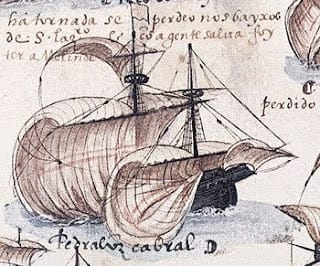 ha tornada se perdeo nos bayxos
de S. lazro a gente salva foy
ter a Melinde
perdido
Pedraluz cabral